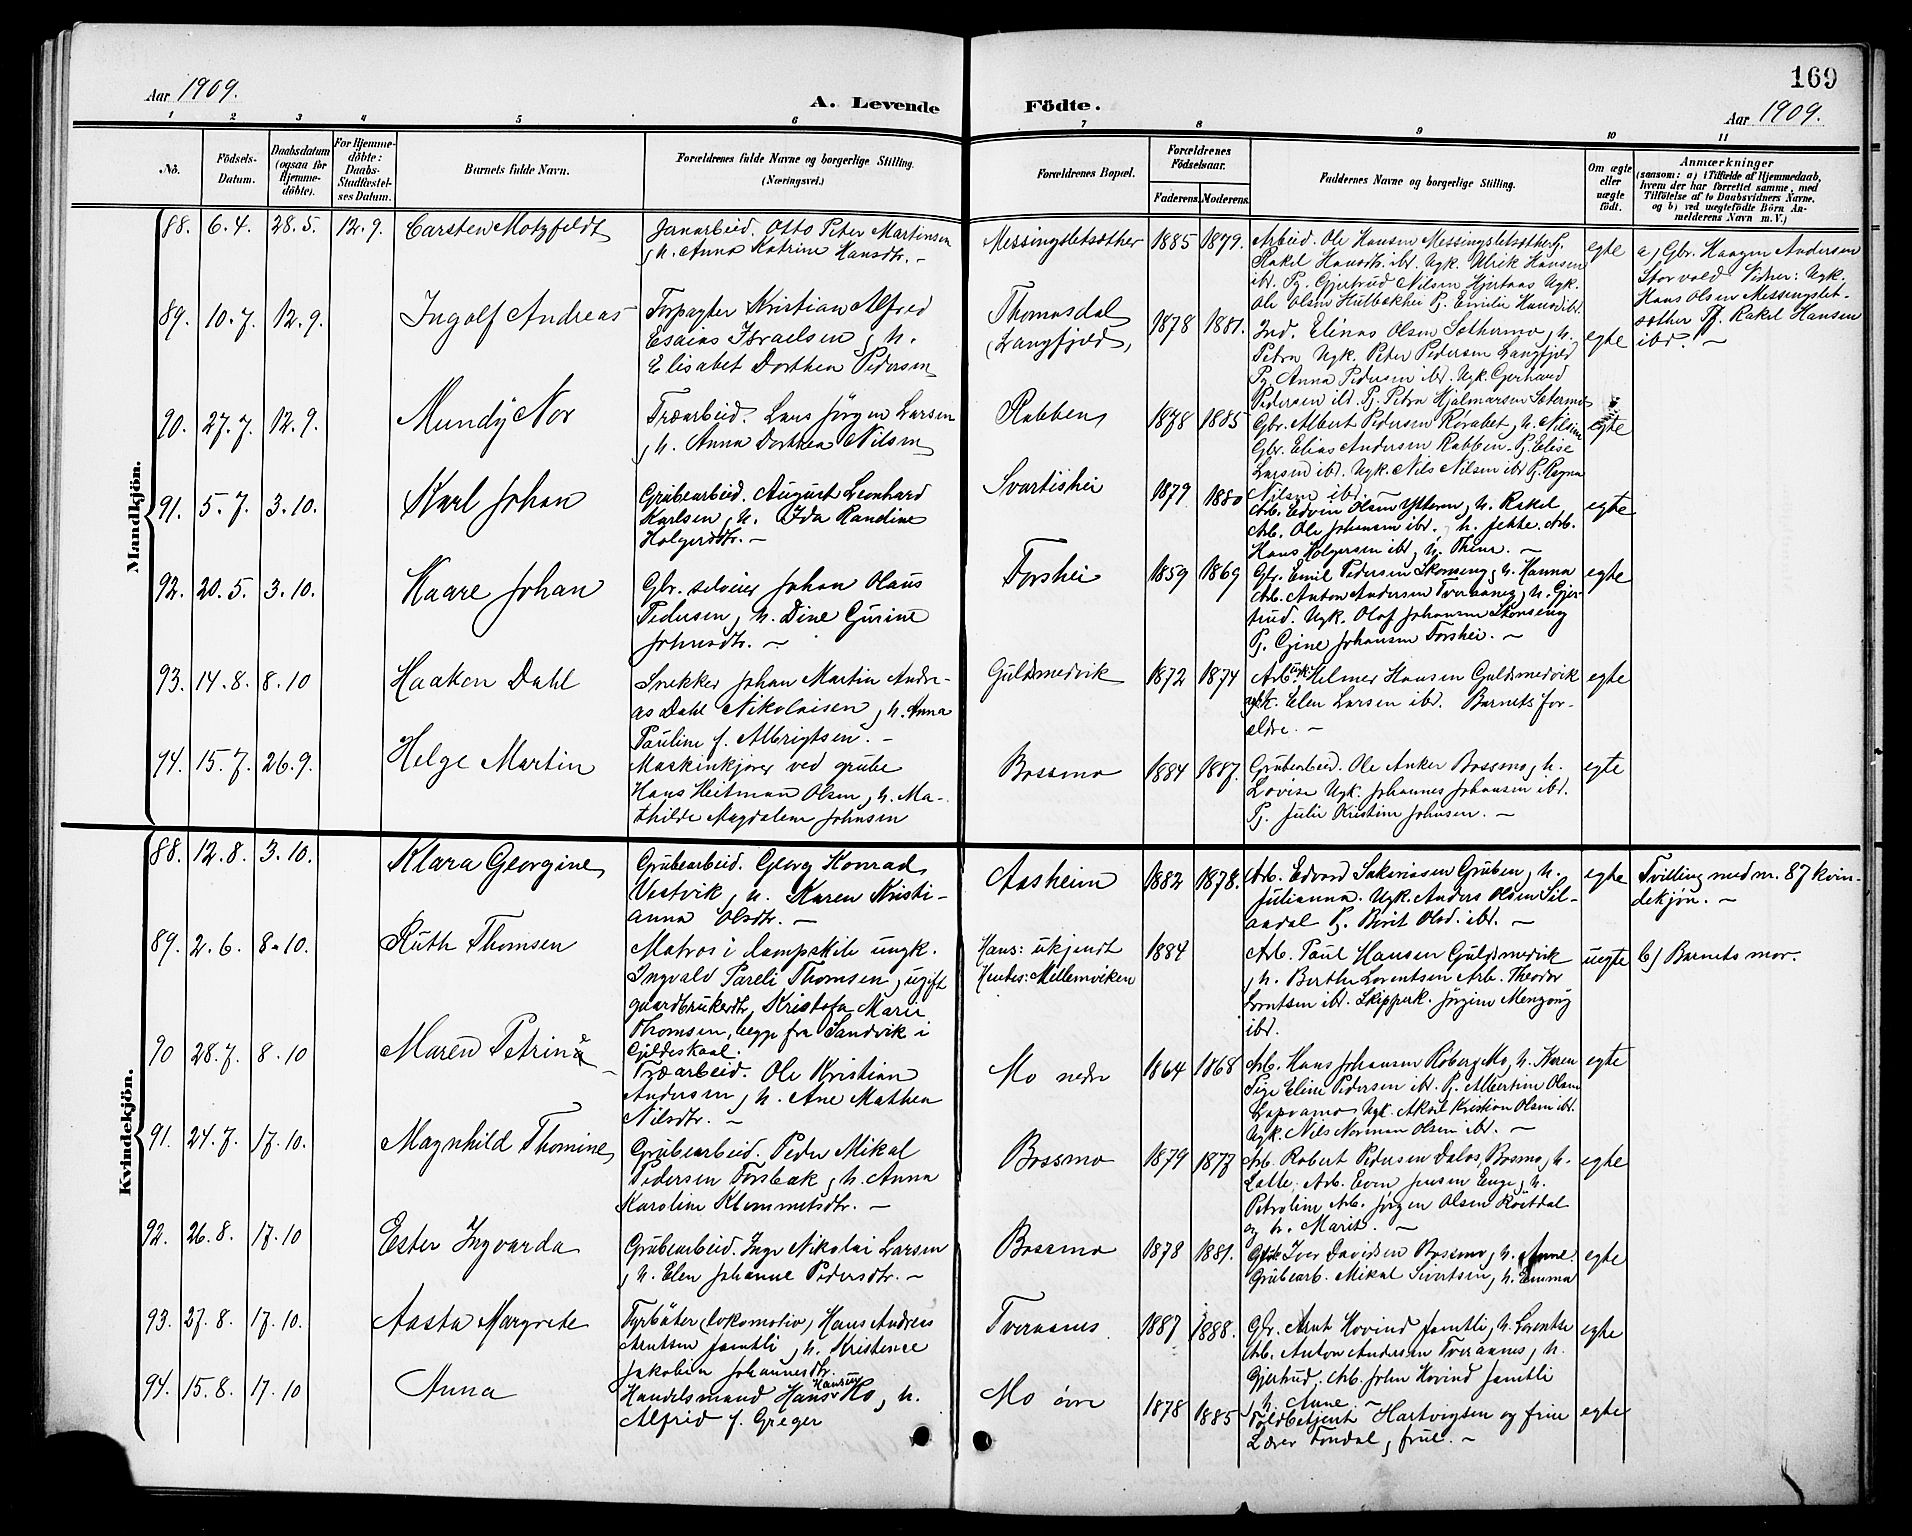 169
Aar 1909.
A. Levende Födte.
Aar 1909.
1 2 3 4 5 6 7 8 9 10 11
No.
Födsels-Datum.
Daabsdatum (ogsaa for Hjemme-döbte).
For Hjemme-döbte: Daabs-Stadfæstel-ses Datum.
Barnets fulde Navn.
Forældrenes fulde Navne og borgerlige Stilling. (Næringsvei.)
Forældrenes Bopæl.
Forældrenes Födselsaar.
Faderens. Moderens.
Faddernes Navne og borgerlige Stilling.
Om ægte eller uægte födt.
Anmærkninger
(saasom: a) i Tilfælde af Hjemmedaab, hvem der har forrettet samme, med Tilföielse af to Daabsvidners Navne, og b) ved uægtefödte Börn An-melderens Navn m. V.)
Mandkjön.
88. 6.4. 28.5. 12.9. Carsten Motzfeldt
Jarnarbeid. Otto Peter Martinsen
, h. Anna Katrine Hansdtr. –
Messingsletsæther 1885 1879.
Arbeid. Ole Hansen Messingsletsæther P.
Rakel Hansdtr. ibd. Ugk. Ulrik Hansen
ibd. Pg. Gjertrud Nilsen Hjertaas Ugk.
Ole Olsen Hulbækhei Pg. Emilie Hansen ibd.
egte
a) Gbr. Haagen Andersen
Storvold Vidner: Ugk.
Hans Olsen Messingslet-
sæther Pg. Rakel Hansen
ibd. –
89. 10.7. 12.9. Ingolf Andreas
Forpagter Kristian Alfred
Esaias Israelsen, h.
Elisabet Dorthea Pedersen
Thomasdal
(Langfjeld)
1878 1881.
Ind. Elinas Olsen Sæthermo, h.
Petra Ugk. Peter Pedersen Langfjeld
Pg. Anna Pedersen ibd. Ugk. Gerhard
Pedersen ibd. Pg. Petra Hjalmarsen Sætermo
egte
90. 27.7. 12.9. Mundy Nor
Træarbeid. Lars Jörgen Larsen
, h. Anna Dorthea Nilsen
Rabben 1878 1885
Gbr. Albert Pedersen Rörabet, h. Nilsine
Gbr. Elias Andersen Rabben. Pg. Elise
Larsen ibd. Ugk. Nils Nilsen ibd Pg. Ragna
Nilsen ibd.
egte
91. 5.7. 3.10. Karl Johan
Grubearbeid. August Leonhard
Karlsen, h. Ida Randine
Holgersdtr. –
Svartishei 1879 1880
Arb. Edvin Olsen Ytteren, h. Rakel
Arb. Ole Johansen ibd. h. Jekke. Arb.
Hans Holgersen ibd, h. Thina. –
egte
92. 20.5. 3.10. Kaare Johan
Gbr. selveier Johan Olaus
Pedersen, h. Dine Gurine
Johnsdtr. –
Forshei 1859 1869
Gbr. Emil Pedersen Skonseng, h. Hanna
Arb. Anton Andersen Tveraaneng, h. Gjer-
trud. Ugk. Olaf Johansen Skonseng
Pg. Gine Johansen Forshei. –
egte
93. 14.8. 8.10 Haaken Dahl
Snekker Johan Martin Andre-
as Dahl Nikolaisen, h. Anna
Pauline f. Albrigtsen. –
Guldsmedvik 1872 1874
Arb. Helmer Hansen Guldsmedvik
Elen Larsen ibd. Barnets for-
ældre. –
egte
94. 15.7. 26.9. Helge Martin
Maskinkjörer ved grube
Hans Heitman Olsen, h. Ma-
thilde Magdalena Johnsen
Bossmo 1884 1887.
Grubearbeid. Ole Anker Bossmo, h.
Lovise Ugk. Johannes Johansen ibd.
Pg. Julie Kristine Johnsen. –
egte
Kvindekjön.
88. 12.8. 3.10. Klara Georgine
Grubearbeid. Georg Konrad
Vestvik, h. Karen Kristi-
anna Olsdtr. –
Aasheim 1882 1878.
Arb. Edvard Sakariasen Gruben, h.
Julianna. Ugk. Anders Olsen Sil-
aadal Pg. Berit Olsd. ibd. –
egte
Tvilling med nr. 87 kvin-
dekjön. –
89. 2.6. 8.10. Ruth Thomsen
Matros i dampskib ungk.
Ingvald Pareli Thomsen, ugift
gaardbrukerdtr. Kristofa Marie
Thomsen, begge fra Sandvik i
Gildeskaal.
Hans: ukjendt
Hendes: Mellemviken
1884
Arb. Paul Hansen Guldsmedvik
, h. Berthe Lorentsen Arb. Theodor
Lorntsen ibd. Skipperk. Jörgine Menzong
ibd.
uegte b) Barnets mor.
90 28.7. 8.10 Maren Petrine
Træarbeid. Ole Kristian
Andersen, h. Ane Mathea
Nilsdtr. –
Mo nedre 1864 1868
Arb. Hans Johansen Roberg Mo, h. Karen
Pige Eline Pedersen ibd. Pg. Albertine Olsen
Lapvamo Ugk. Aksel Kristian Olsen ibd.
Ugk. Nils Norman Olsen ibd. –
egte
91. 24.7. 17.10. Magnhild Thomine
Grubearbeid. Peder Mikal
Pedersen Forsbak, h. Anna
Karoline Klemmetsdtr. –
Bossmo 1879 1877
Arb. Robert Pedersen Dalos, Bosmo, h.
Lalle. Arb. Even Jensen Enge, h.
Petroline Arb. Jörgen Olsen Röitdal
og h. Marit. –
egte
92. 26.8. 17.10 Ester Ingvarda
Grubearbeid. Inge Nikolai Larsen
, h. Elen Johanne Pedersdtr. –
Bossmo 1878 1881.
Iver Davidsen Bossmo, h. Anne
Grubearb. Mikal Sivertsen, h. Emma
egte
93. 27.8. 17.10. Aasta Margrete
Fyrböter (lokomotiv) Hans Andreas
Arntsen Jamtli, h. Kristence
Jakobine Johannesdtr.
Tveraanes 1887 1888.
Gbr. Arnt Hovind Jamtli, h. Lorentse
Arb. Anton Andersen Tveraanes, h.
Gjertrud. Arb. John Hovind Jamtli
, h. Anne. –
egte
94. 15.8. 17.10 Anna
Handelsmand Hans Hansen Mo, h.
Alfrid f. Greger
Mo övre 1878 1885
Toldbetjent Hartvigsen og frue
Lærer Tondal, frue. –
egte